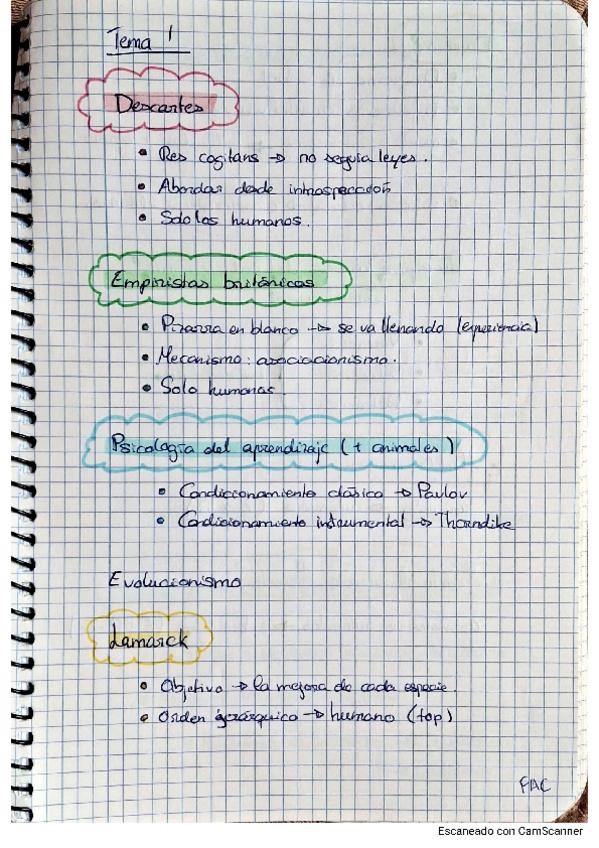 Tema 1
Descartes
• Res cogitans → no seguia leyes.
• Abordar desde introspección
• Solo los humanos.
Empiristas británicos
• Pizarra en blanco → se va llenando (experiencia)
• Mecanismo: asociacionismo.
• Solo humanos.
Psicología del aprendizaje (+ animales)
• Condiccionamiento clásico → Pavlov
• Condicionamiento instrumental → Thorndike
Evolucionismo
Lamarck
• Objetivo → la mejora de cada especie.
• Orden jerárquico → humano (top)
FAC
Escaneado con CamScanner